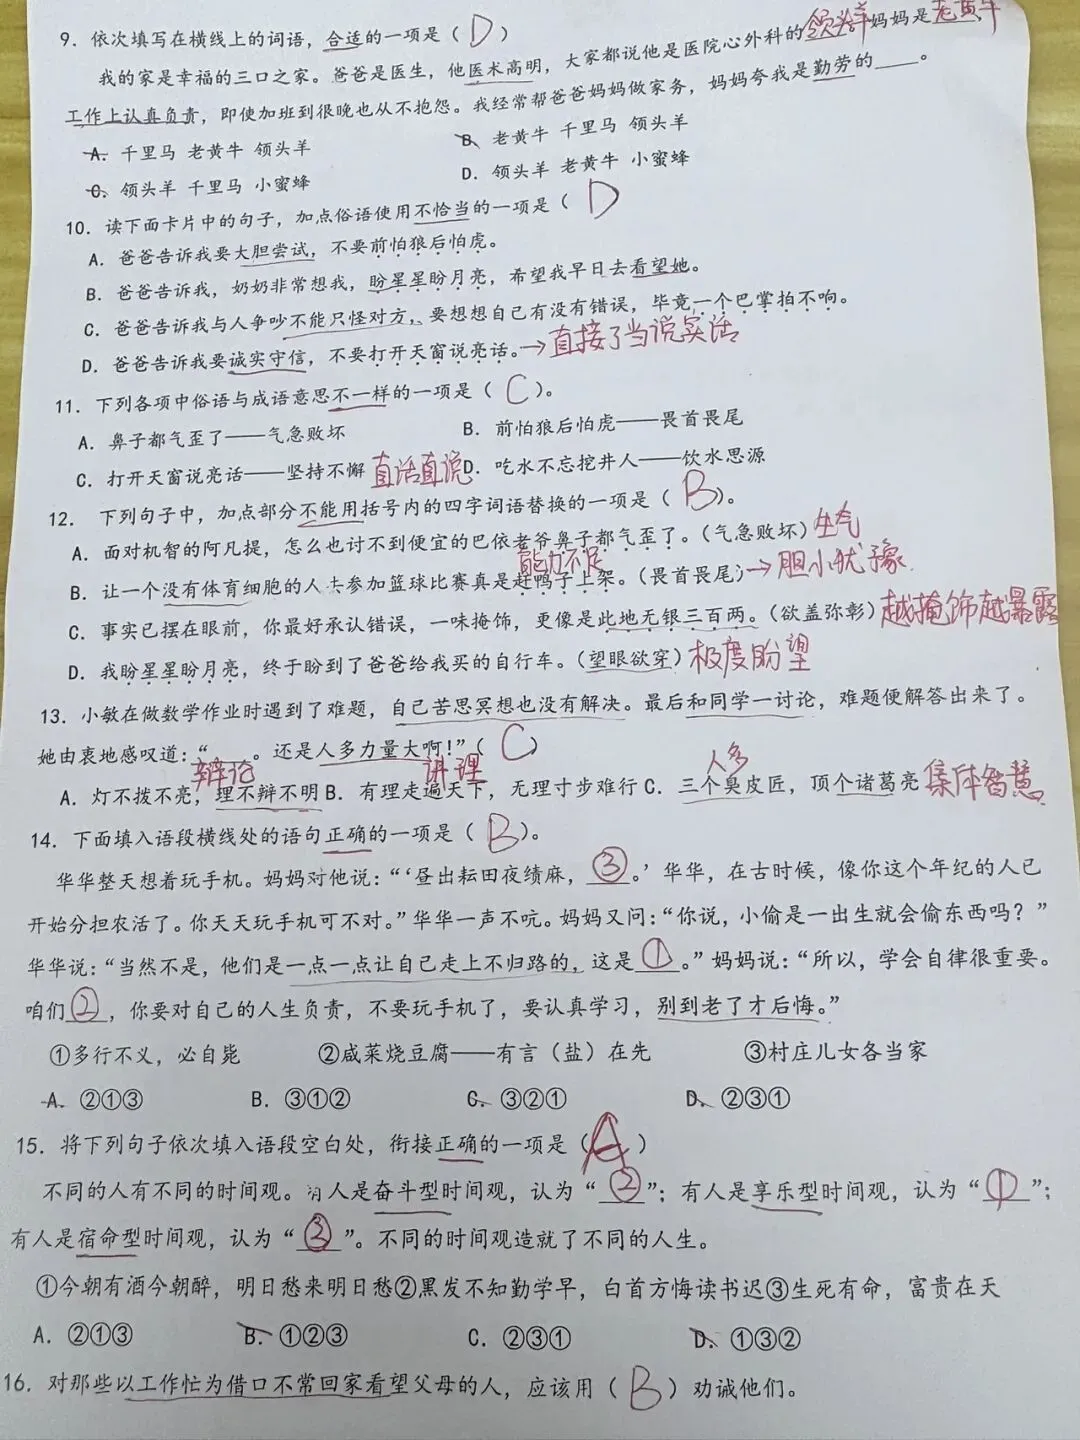 9. 依次填写在横线上的词语，合适的一项是（ D ）
我的家是幸福的三口之家。爸爸是医生，他医术高明，大家都说他是医院心外科的领头羊妈妈是老黄牛，
工作上认真负责，即使加班到很晚也从不抱怨。我经常帮爸爸妈妈做家务，妈妈夸我是勤劳的____。
A. 千里马 老黄牛 领头羊 B. 老黄牛 千里马 领头羊
C. 领头羊 千里马 小蜜蜂 D. 领头羊 老黄牛 小蜜蜂
10. 读下面卡片中的句子，加点俗语使用不恰当的一项是（ D
A. 爸爸告诉我要大胆尝试，不要前怕狼后怕虎。
B. 爸爸告诉我，奶奶非常想我，盼星星盼月亮，希望我早日去看望她。
C. 爸爸告诉我与人争吵不能只怪对方，要想想自己有没有错误，毕竟一个巴掌拍不响。
D. 爸爸告诉我要诚实守信，不要打开天窗说亮话。→直接了当说实话
11. 下列各项中俗语与成语意思不一样的一项是（ C ）。
A. 鼻子都气歪了——气急败坏 B. 前怕狼后怕虎——畏首畏尾
C. 打开天窗说亮话——坚持不懈 直话直说 D. 吃水不忘挖井人——饮水思源
12. 下列句子中，加点部分不能用括号内的四字词语替换的一项是（ B ）。
A. 面对机智的阿凡提，怎么也讨不到便宜的巴依老爷鼻子都气歪了。（气急败坏）生气
能力不足
B. 让一个没有体育细胞的人去参加篮球比赛真是赶鸭子上架。（畏首畏尾）→胆小犹豫
C. 事实已摆在眼前，你最好承认错误，一味掩饰，更像是此地无银三百两。（欲盖弥彰）越掩饰越暴露
D. 我盼星星盼月亮，终于盼到了爸爸给我买的自行车。（望眼欲穿）极度盼望
13. 小敏在做数学作业时遇到了难题，自己苦思冥想也没有解决。最后和同学一讨论，难题便解答出来了。
她由衷地感叹道：“____。还是人多力量大啊！”（ C ）
辩论 讲理 人多
A. 灯不拨不亮，理不辩不明 B. 有理走遍天下，无理寸步难行 C. 三个臭皮匠，顶个诸葛亮 集体智慧
14. 下面填入语段横线处的语句正确的一项是（ B ）。
华华整天想着玩手机。妈妈对他说：“‘昼出耘田夜绩麻，③。’华华，在古时候，像你这个年纪的人已
开始分担农活了。你天天玩手机可不对。”华华一声不吭。妈妈又问：“你说，小偷是一出生就会偷东西吗？”
华华说：“当然不是，他们是一点一点让自己走上不归路的，这是①。”妈妈说：“所以，学会自律很重要。
咱们②，你要对自己的人生负责，不要玩手机了，要认真学习，别到老了才后悔。”
①多行不义，必自毙 ②咸菜烧豆腐——有言（盐）在先 ③村庄儿女各当家
A. ②①③ B. ③①② C. ③②① D. ②③①
15. 将下列句子依次填入语段空白处，衔接正确的一项是（ A ）
不同的人有不同的时间观。有人是奋斗型时间观，认为“②”；有人是享乐型时间观，认为“①”；
有人是宿命型时间观，认为“③”。不同的时间观造就了不同的人生。
①今朝有酒今朝醉，明日愁来明日愁②黑发不知勤学早，白首方悔读书迟③生死有命，富贵在天
A. ②①③ B. ①②③ C. ②③① D. ①③②
16. 对那些以工作忙为借口不常回家看望父母的人，应该用（ B ）劝诫他们。